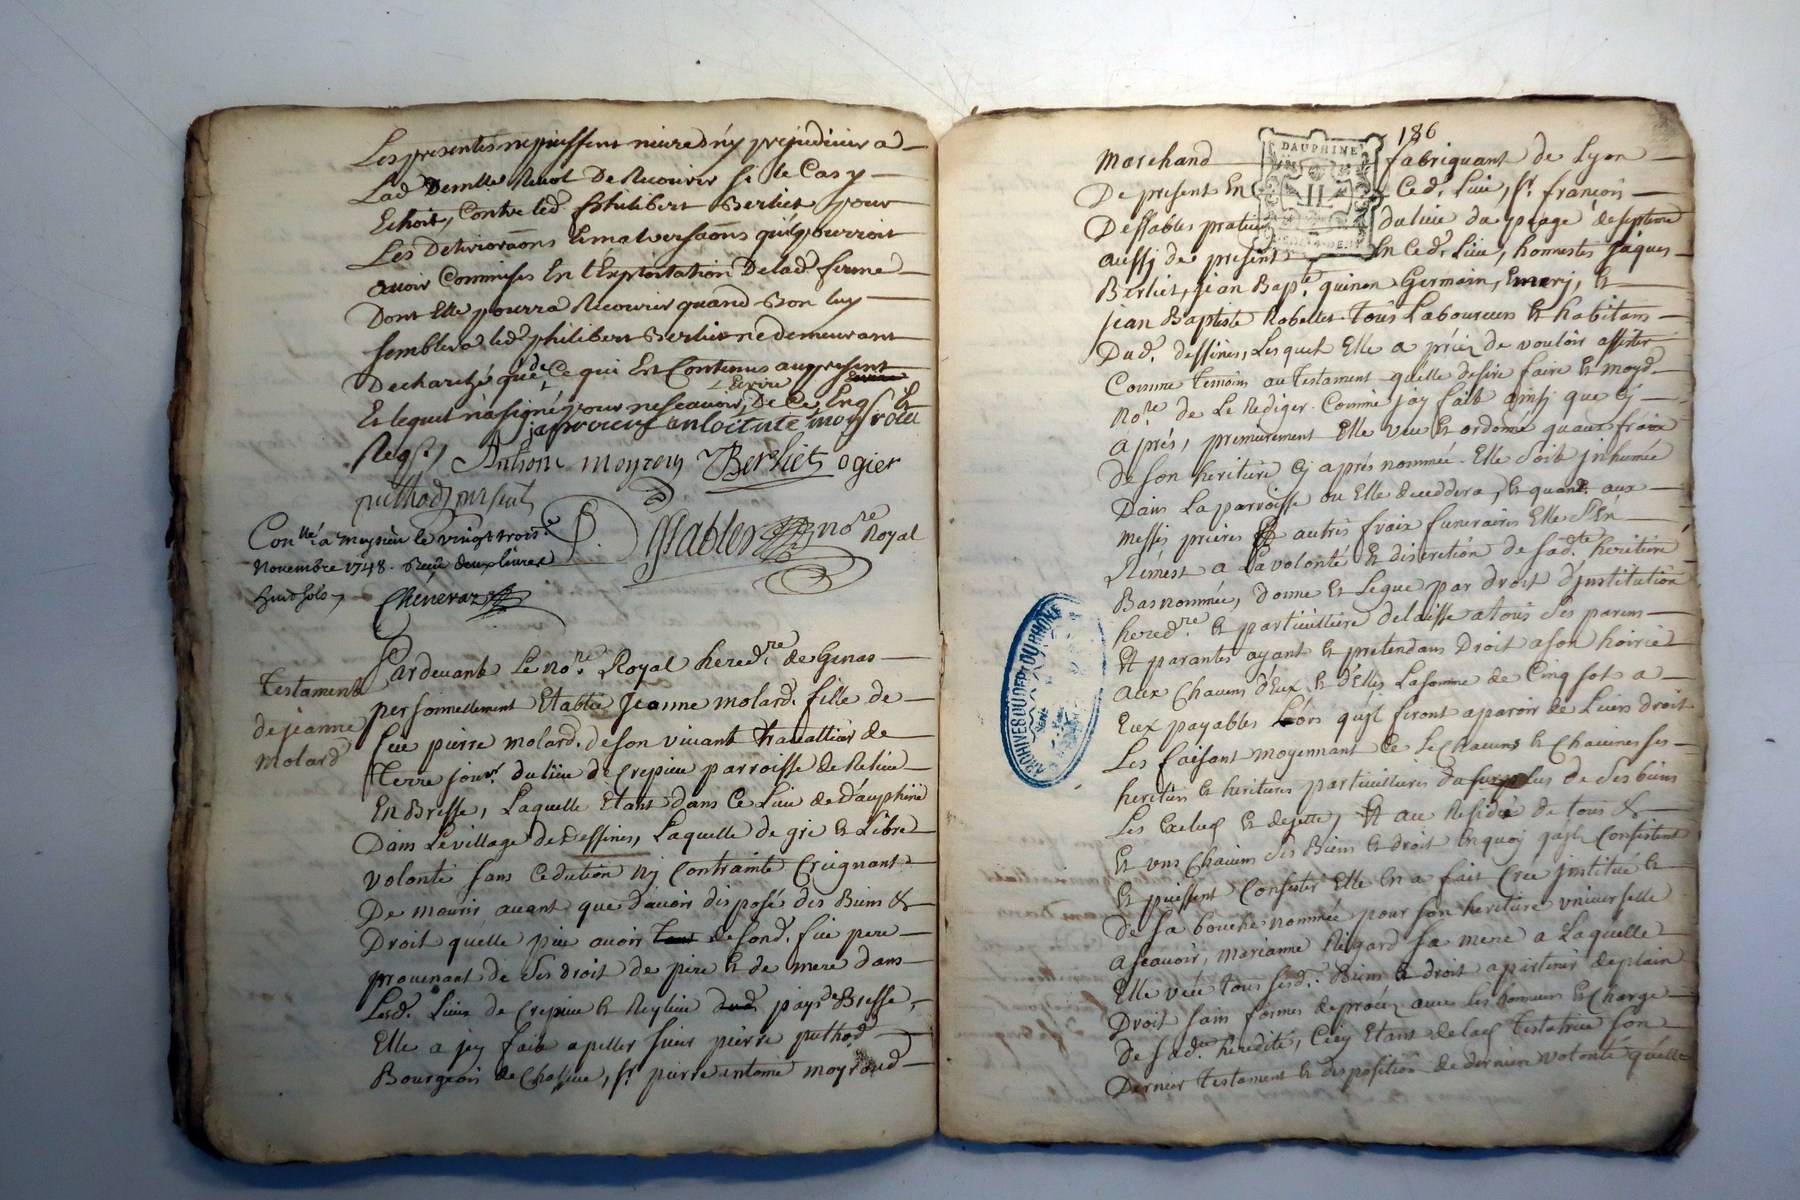 Les presentes ne puissent nuire d'y prejudicier a
Lad. Demlle Revol De Recourir si le Cas y
Echoit, Contre led. philibert Berliet pour
Les Deteriorãons Et malversãons qu'il pourroit
avoir Commises En l'Exploitation De lad. ferme
Dont Elle pourra Recourir quand Bon luy
semblera led. philibert Berliet ne demeurant
Decharhé que de Ce qui Est Contenus au present
Et lequel n'a signé pour ne scavoir, De Ce Enqs Et
Escrire
Reqs
Anthoine moyroud Berliet ogier
puthod present
D. Dessables nore Royal
Conllé a meyzieu le vingt trois.e
Novembre 1748. Reçu deux livres
huit sols
Cheneraz
Testament
de jeanne
molard
Pardevant Le nore. Royal hered.re de Genas
personnellement Etablie Jeanne molard. fille de
feu pierre molard. de son vivant travattieur de
Terre jour. du lieu de Crepieu parroisse de Relieu
En Bresse, Laquelle Etant dans Ce Lieu de dauphiné
Dans Le village de Dessines, Laquelle de gré Et Libre
volonté sans Seduction Nj Contrainte Craignant
De mourir avant que d'avoir disposé des Biens &
Droit quelle peu avoir de fond. feu pere
provenant de Ses droit de pere Et de mere dans
Lesd. Lieux de Crepieu Et Reylieu pays de Bresse,
Elle a jcy fait apeller sieur pierre puthod
Bourgeois de Chassieu, sr. pierre antoine moyroud
186
DAUPHINE
Marchand fabriquant de Lyon
De present En Ced. Lieu, sr. françois
Dessables praticien du lieu du peage de septeme
aussj de present En Ced. Lieu, honnestes jaques
Berliet, jean Bapte. quinon Germain, Emerj, Et
jean Baptiste Robellet Tous Laboureurs Et habitans
Dud. dessines, Lesquels Elle a priéz de vouloir assister
Comme Temoins au Testament quelle desire faire Et moyd.
nore de Le Rediger Comme j'ay fait ainsj que Cj
après, premierement Elle veu Et ordonne quaux fraix
de son heritiere Cj après nommée Elle Soit jnhumée
Dans La parroisse ou Elle deceddera, Et quand aux
messes prieres Et autres fraix funeraires Elle S'En
Remest a La volonté Et discretion de sad.te heritiere
Bas nommée, donne Et Legue par droit d'jnstitution
hered.re Et particuilliere delaisse a tous Ses parens
Et parantes ayant Et pretendans Droit a son hoirie
aux Chacuns d'Eux Et d'Elles La somme de Cinq sol a
Eux payables Lors qu'jl feront aparoir de Leurs droit
Les faisant moyennant Ce Ses Chacuns Et Chacunes Ses
heritiers Et heritieres particuillieres du surplus de Ses biens
Les Exclus Et dejette, Et au Residu de tous &
Et uns Chacuns Ses Biens Et droit En quoj qu'jl Consistent
Et puissent Consister Elle En a fait Cree jnstitué Et
de sa bouche nommée pour son heritiere universelle
a scavoir, marianne Rigard sa mere a Laquelle
Elle veu Tous Sesd. Biens Et droit apartenir de plain
Droit sans formes de procez avec les honneurs Et Charge
de sad. heredité, Cecy Etant de lad. Testatrice son
Dernier Testament Et disposition de derniere volonté qu'elle
ARCHIVES DU DEPT DU RHONE